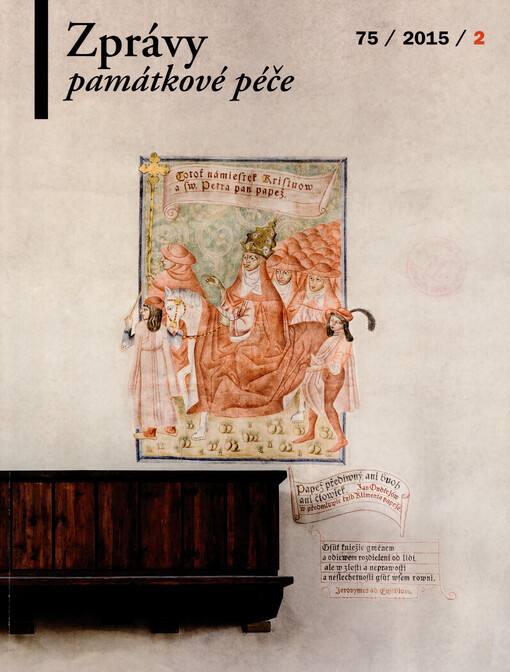 Zprávy
památkové péče
75 / 2015 / 2
Totoť námiestek Kristuow
a sw. Petra pan papež.
Papež przediwný ani buoh
ani člowiek Jan Ondřejuow
w předmluwie knih Klimenta papeže
Gsút kniežie gménem
a odiewem rozdieleni od lidí
ale w zlosti a neprawosti
a neslechetnosti gsúť wšem rowni.
Jeronymus ad